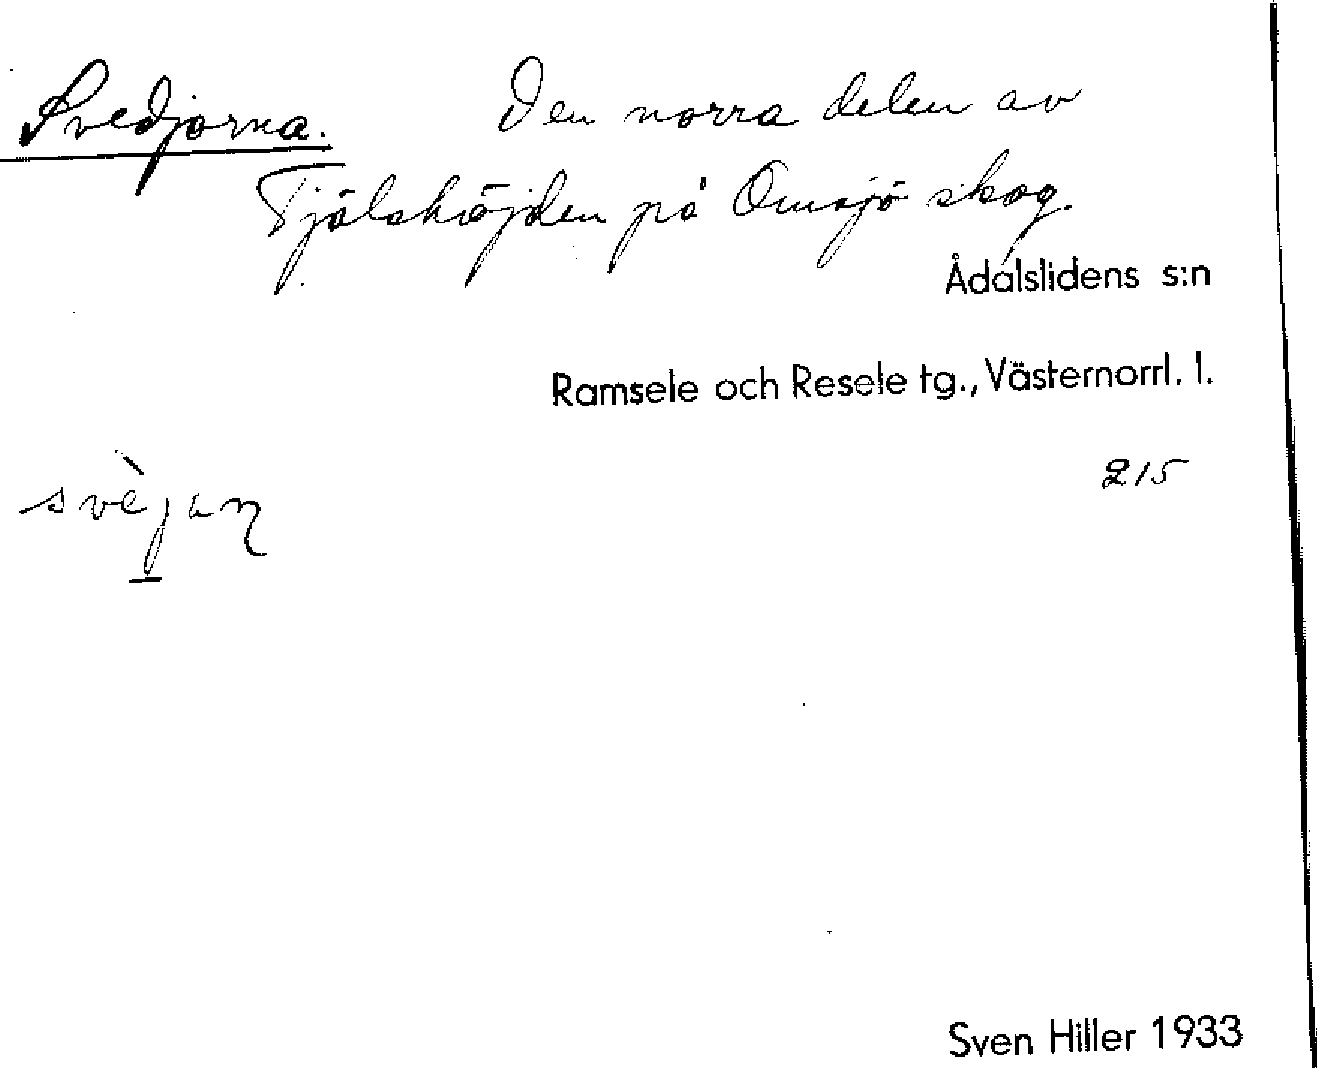 Svedjorna. Den norra delen av
Tjälshöjden på Omsjö skog.
Ådalslidens s:n
Ramsele och Resele tg., Västernorrl. l.
215
svèjun
Sven Hiller 1933